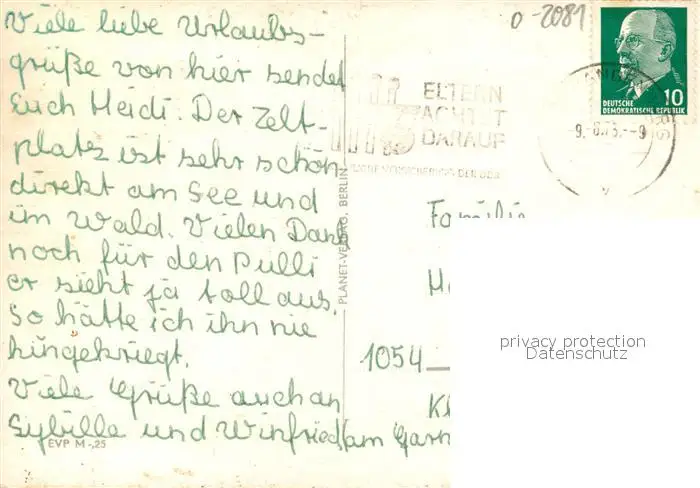 Viele liebe Urlaubs-
grüße von hier sendet
Euch Heidi. Der Zelt-
platz ist sehr schön
direkt am See und
im Wald. Vielen Dank
noch für den Pulli
er sieht ja toll aus.
So hätte ich ihn nie
hingekriegt.
Viele Grüße auch an
Sybille und Winfried
EVP M -,25
PLANET-VERLAG, BERLIN
0-2081
ELTERN
ACHTET
DARAUF
DER DDR
10
DEUTSCHE
DEMOKRATISCHE REPUBLIK
-9.-8.73.--9
Familie
1054
am
privacy protection
Datenschutz